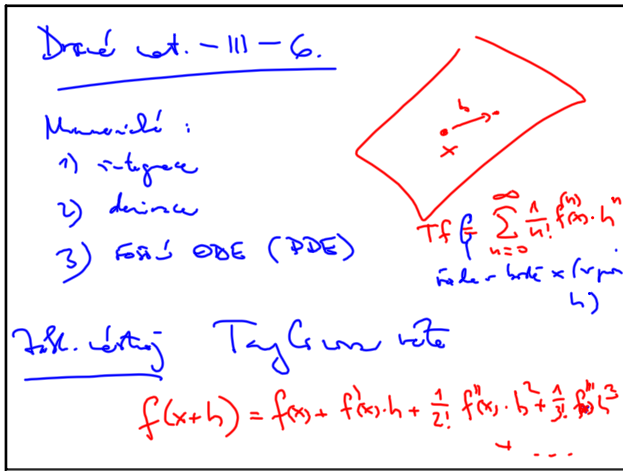 Drsné mat. - III - 6.
Numerické :
1) integrace
2) derivace
3) řešení ODE (PDE)
h
x
Tf = \sum_{n=0}^{\infty} \frac{1}{n!} f^{(n)}(x) \cdot h^n
řada v bodě x (v
h)
Zákl. nástroj Taylorova věta
f(x+h) = f(x) + f'(x) \cdot h + \frac{1}{2!} f''(x) \cdot h^2 + \frac{1}{3!} f'''(x) h^3
+ ...